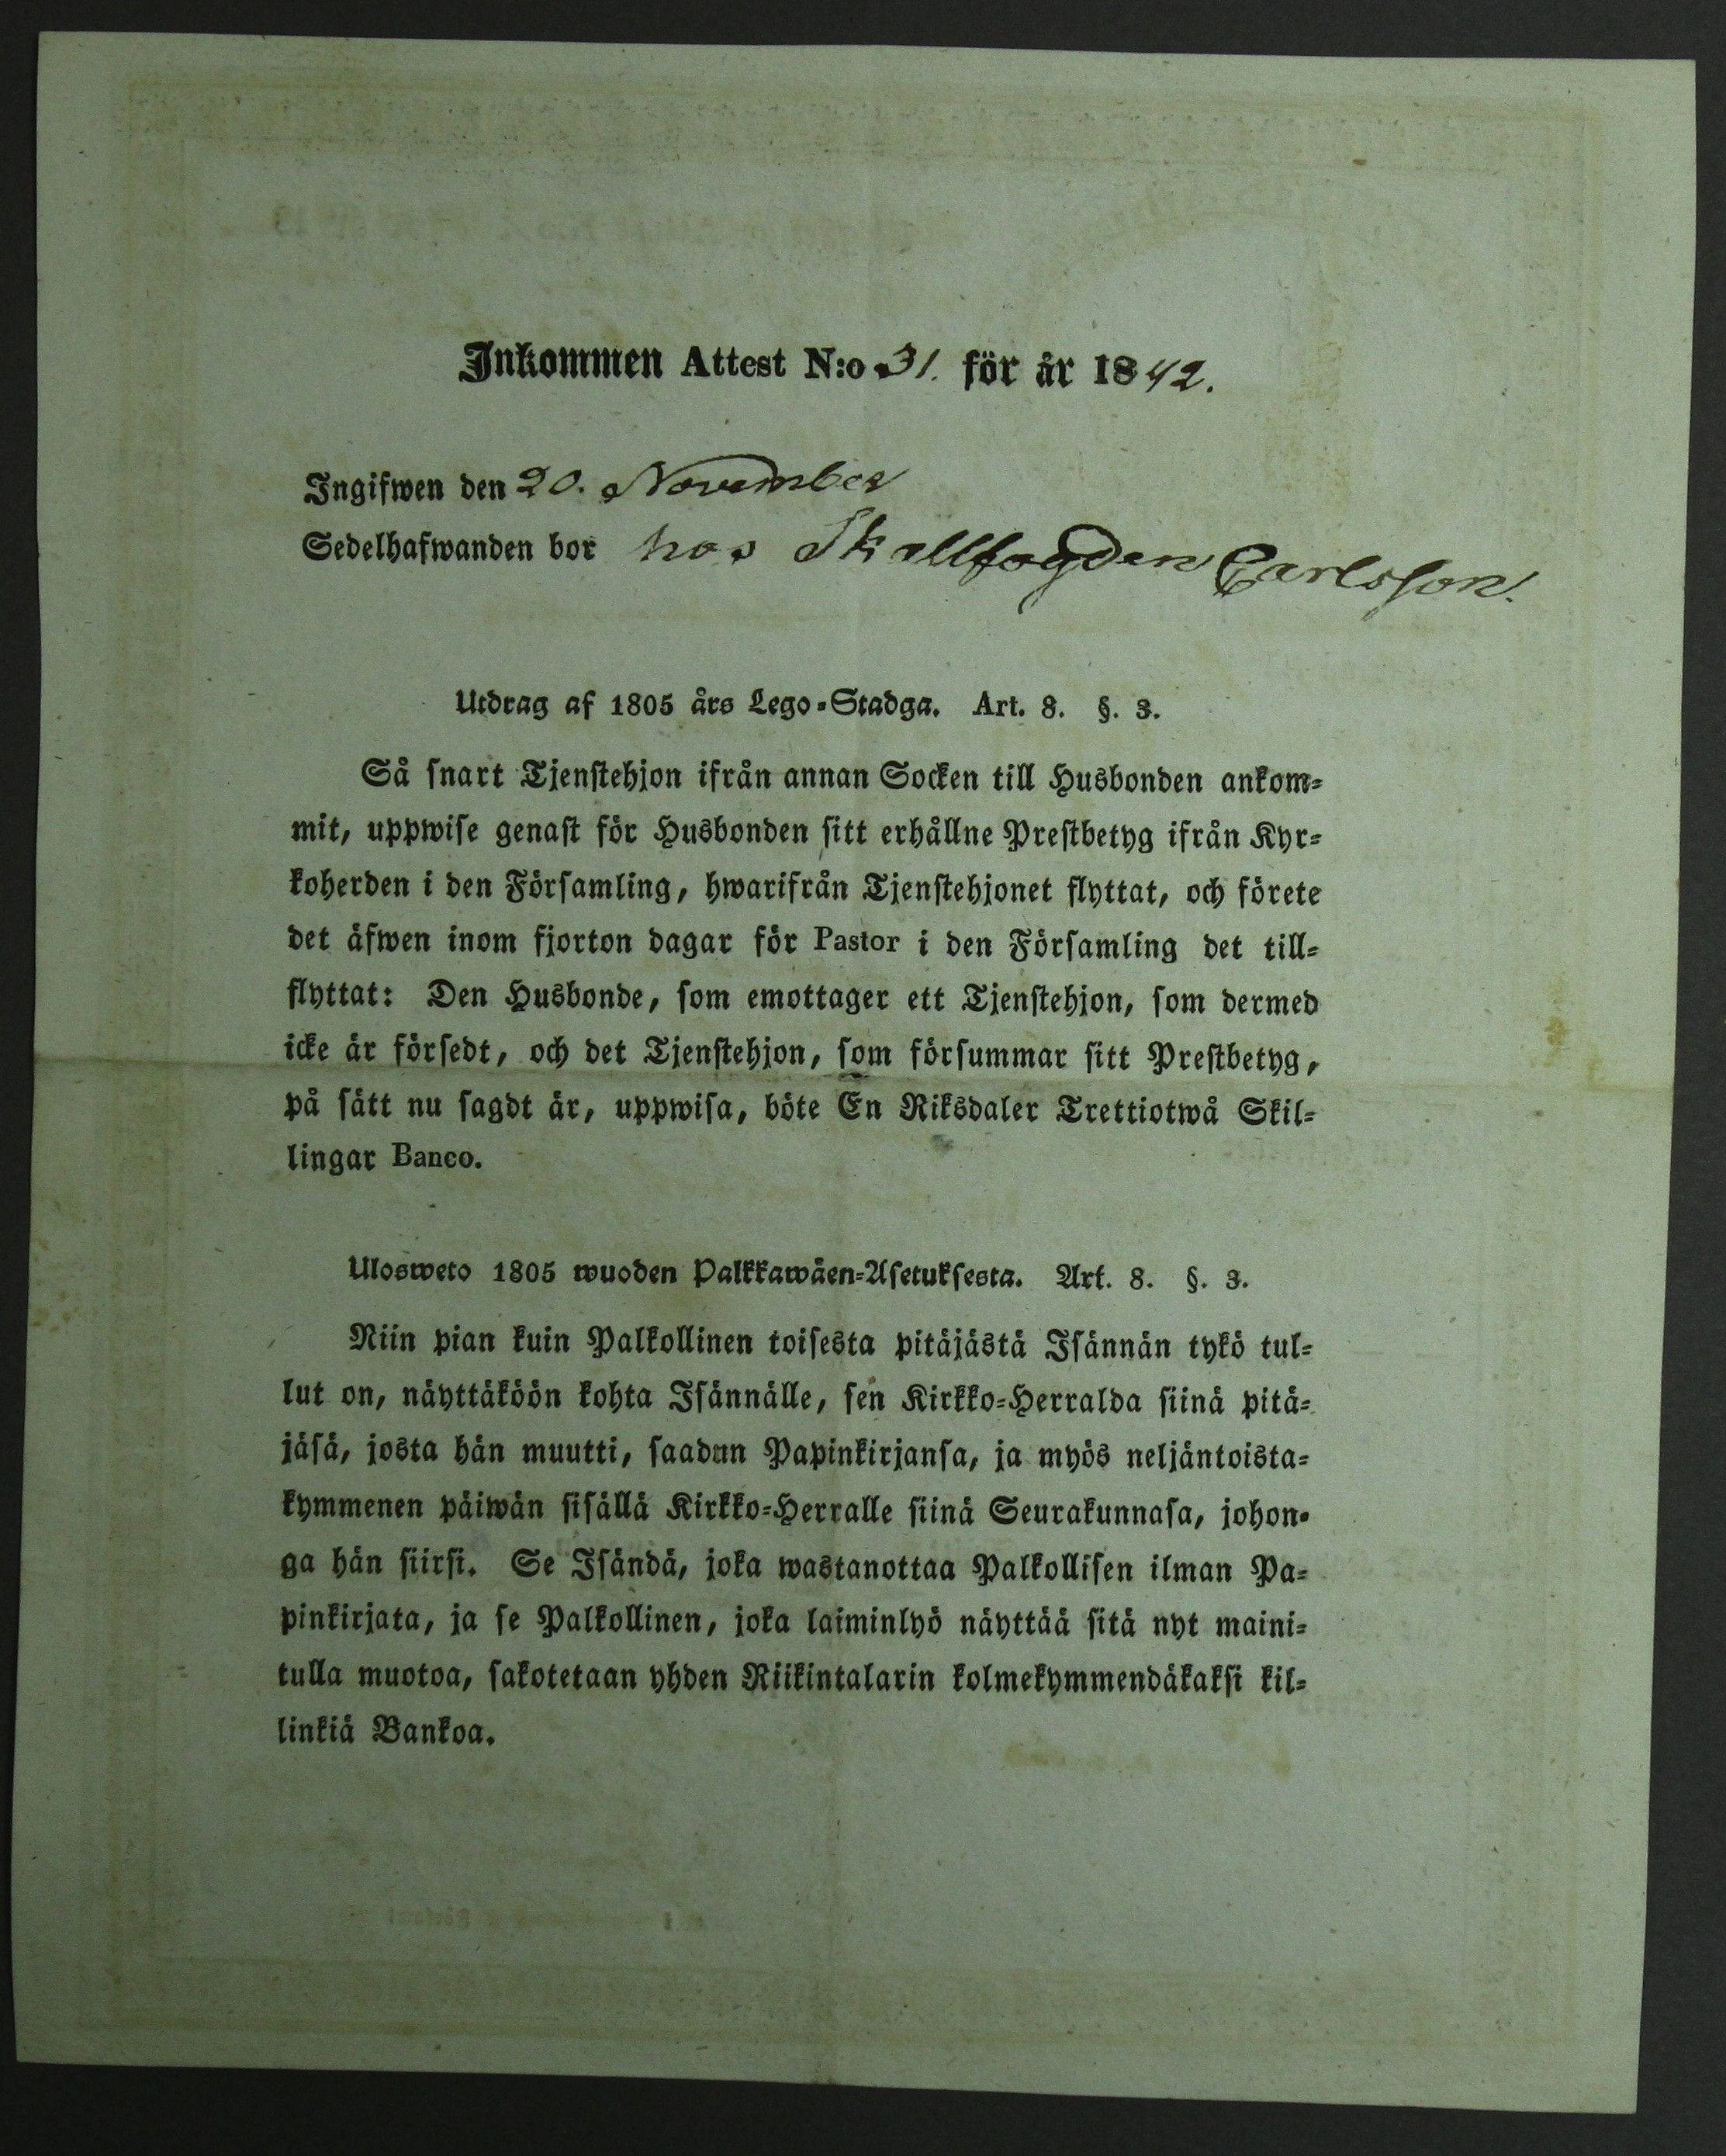 Inkommen Attest N:o 31. för år 1842.
Ingifwen den 20. November
Sedelhafwanden bor hos Skallfogden Carlsson.
Utdrag af 1805 års Lego-Stadga. Art. 8. §. 3.
Så snart Tjenstehjon ifrån annan Socken till Husbonden ankom-
mit, uppwise genast för Husbonden sitt erhållne Prestbetyg ifrån Kyr-
koherden i den Församling, hwarifrån Tjenstehjonet flyttat, och förete
det äfwen inom fjorton dagar för Pastor i den Församling det till-
flyttat: Den Husbonde, som emottager ett Tjenstehjon, som dermed
icke är försedt, och det Tjenstehjon, som försummar sitt Prestbetyg,
på sätt nu sagdt är, uppwisa, böte En Riksdaler Trettiotwå Skil-
lingar Banco.
Ulosweto 1805 wuoden Palkkawäen-Asetuksesta. Art. 8. §. 3.
Niin pian kuin Palkollinen toisesta pitäjästä Isännän tykö tul-
lut on, näyttäköön kohta Isännälle, sen Kirkko-Herralda siinä pitä-
jäsä, josta hän muutti, saadun Papinkirjansa, ja myös neljäntoista-
kymmenen päiwän sisällä Kirkko-Herralle siinä Seurakunnasa, johon-
ga hän siirsi. Se Isändä, joka wastanottaa Palkollisen ilman Pa-
pinkirjata, ja se Palkollinen, joka laiminlyö näyttää sitä nyt maini-
tulla muotoa, sakotetaan yhden Riikintalarin kolmekymmendäkaksi kil-
linkiä Bankoa.